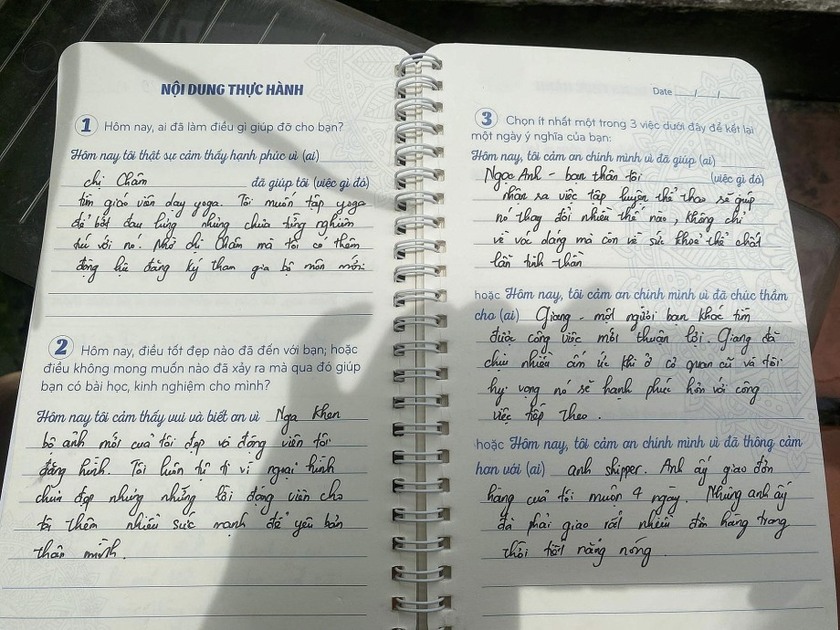 NỘI DUNG THỰC HÀNH
1 Hôm nay, ai đã làm điều gì giúp đỡ cho bạn?
Hôm nay tôi thật sự cảm thấy hạnh phúc vì (ai)
chị Châm đã giúp tôi (việc gì đó)
tìm giáo viên dạy yoga. Tôi muốn tập yoga
để bắt đầu nhưng nhưng chưa từng nghiêm
túc với nó. Nhờ chị Châm mà tôi có thêm
động lực đăng ký tham gia bộ môn mới
2 Hôm nay, điều tốt đẹp nào đã đến với bạn; hoặc
điều không mong muốn nào đã xảy ra mà qua đó giúp
bạn có bài học, kinh nghiệm cho mình?
Hôm nay tôi cảm thấy vui và biết ơn vì Nga khen
bộ ảnh mới của tôi đẹp và động viên tôi
đăng hình. Tôi luôn tự ti vì ngoại hình
chưa đẹp nhưng những lời động viên cho
tôi thêm nhiều sức mạnh để yêu bản
thân mình.
Date
3 Chọn ít nhất một trong 3 việc dưới đây để kết lại
một ngày ý nghĩa của bạn:
Hôm nay, tôi cảm ơn chính mình vì đã giúp (ai)
Ngọc Anh - bạn thân tôi (việc gì đó)
nhận ra việc tập luyện thể thao sẽ giúp
nó thay đổi nhiều thế nào, không chỉ
về vóc dáng mà còn về sức khoẻ thể chất
lẫn tinh thần
hoặc Hôm nay, tôi cảm ơn chính mình vì đã chúc thầm
cho (ai) Giang - một người bạn khác tìm
được công việc mới thuận lợi. Giang đã
chịu nhiều ấm ức khi ở cơ quan cũ và tôi
hy vọng nó sẽ hạnh phúc hơn với công
việc tiếp theo.
hoặc Hôm nay, tôi cảm ơn chính mình vì đã thông cảm
hơn với (ai) anh shipper. Anh ấy giao đơn
hàng của tôi muộn 4 ngày. Nhưng anh ấy
đã phải giao rất nhiều đơn hàng trong
thời tiết nắng nóng.